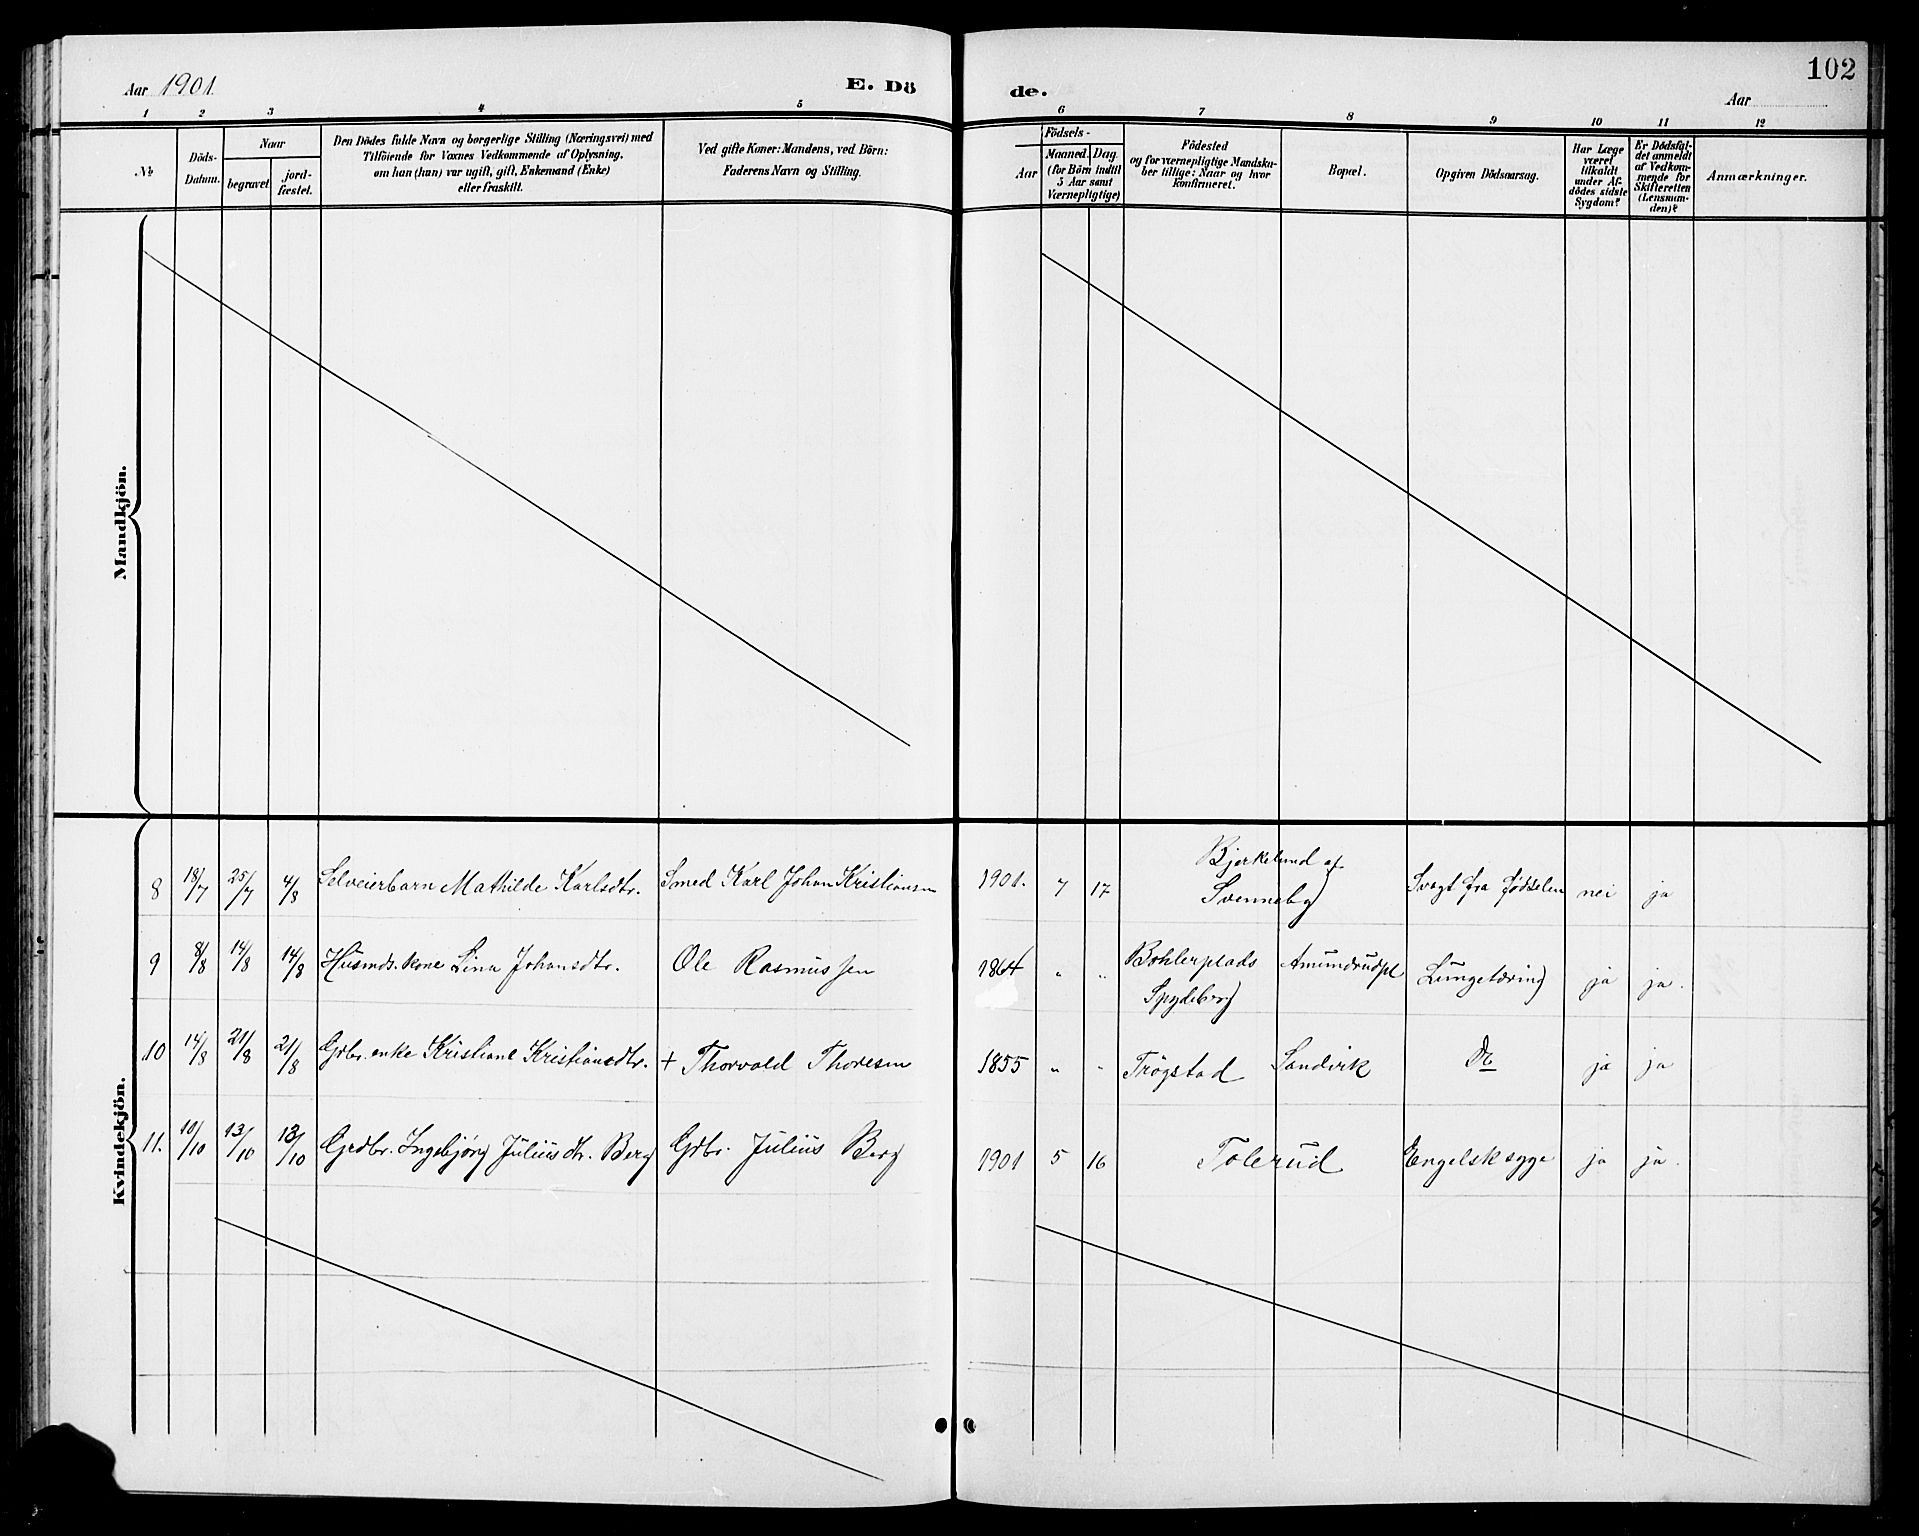 102
Aar 1901.
E. Dö
de.
Aar
1 2 3 4 5 6 7 8 9 10 11 12
№
Döds-
Datum.
Naar
begravet.
jord-
fæstet.
Den Dödes fulde Navn og borgerlige Stilling (Næringsvei) med
Tilföiende for Voxnes Vedkommende af Oplysning,
om han (hun) var ugift, gift, Enkemand (Enke)
eller fraskilt.
Ved gifte Koner: Mandens, ved Börn:
Faderens Navn og Stilling.
Födsels-
Aar
Maaned. Dag.
(for Börn indtil
5 Aar samt
Værnepligtige)
Födested
og for værnepligtige Mandska-
ber tillige: Naar og hvor
konfirmeret.
Bopæl.
Opgiven Dödsaarsag.
Har Læge
været
tilkaldt
under Af-
dödes sidste
Sygdom?
Er Dödsfal-
det anmeldt
af Vedkom-
mende for
Skifteretten
(Lensman-
den)?
Anmærkninger.
Mandkjön.
Kvindekjön.
8 18/7 25/7 4/8 Selveierbarn Mathilde Karlsdtr. Smed Karl Johan Kristiansen 1901. 7 17 Bjerkelund af
Svenneby Svagt fra fødselen nei ja
9 8/8 14/8 14/8 Husmds. kone Lina Johansdtr. Ole Rasmussen 1864 " " Bohlerplads Amundrudpl Lungetæring ja ja.
Spydeberg
10 14/8 21/8 21/8 Grbr. enke Kristiane Kristiansdtr. + Thorvald Thoresen 1855 " " Trögstad Sandvik Do ja ja
11. 10/10 13/10 13/10 Grdbr. Ingebjørg Juliusdtr. Berg Grbr. Julius Berg 1901 5 16 Tolerud Engelsk syge ja ja.